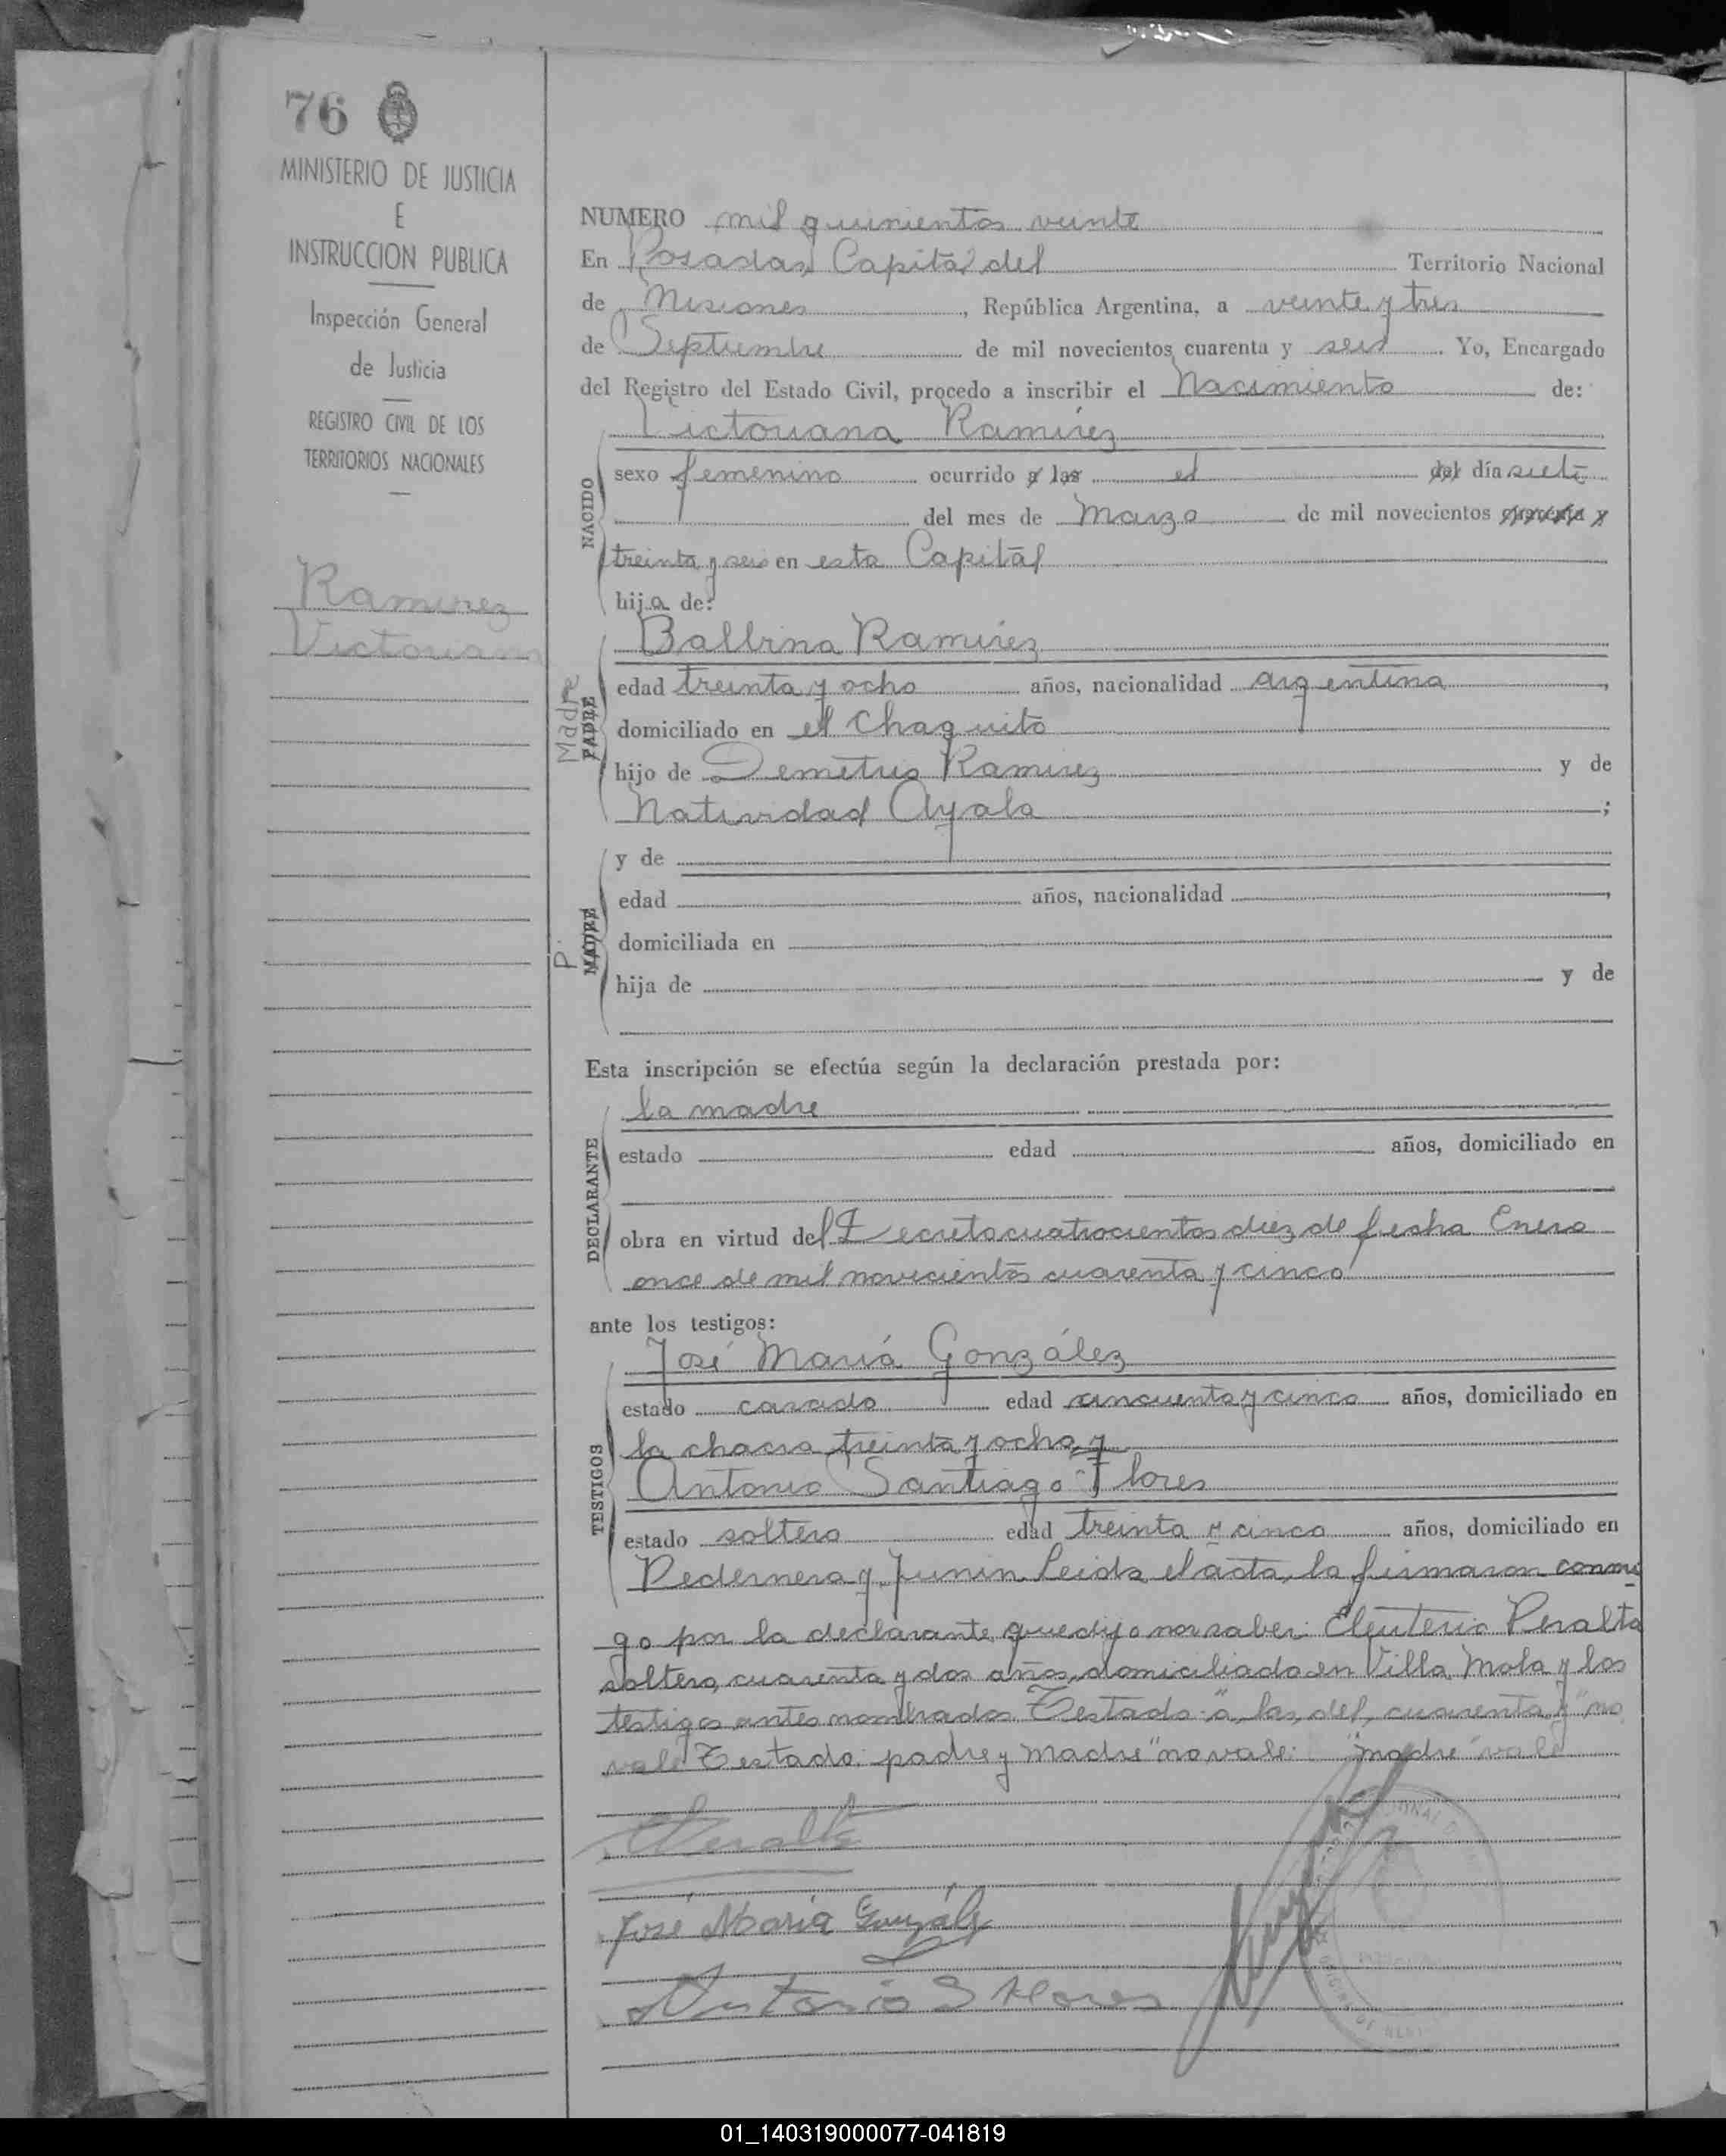 76
MINISTERIO DE JUSTICIA
E
INSTRUCCION PUBLICA
Inspección General
de Justicia
REGISTRO CIVIL DE LOS
TERRITORIOS NACIONALES
Ramirez
Victoriana
NUMERO mil quinientos veinte
En Posadas Capital del Territorio Nacional
de Misiones, República Argentina, a veinte y tres
de Septiembre de mil novecientos cuarenta y seis. Yo, Encargado
del Registro del Estado Civil, procedo a inscribir el Nacimiento de:
NACIDO
Victoriana Ramírez
sexo femenino ocurrido a las el del día siete
del mes de Marzo de mil novecientos cuarenta y
treinta y seis en esta Capital
hija de:
Madre
PADRE
Balbina Ramírez
edad treinta y ocho años, nacionalidad argentina,
domiciliado en el Chaquito
hijo de Demetrio Ramirez y de
Natividad Ayala;
P.
MADRE
y de
edad años, nacionalidad,
domiciliada en
hija de y de
Esta inscripción se efectúa según la declaración prestada por:
DECLARANTE
la madre
estado edad años, domiciliado en
obra en virtud del Decreto cuatrocientos diez de fecha Enero
once de mil novecientos cuarenta y cinco
ante los testigos:
TESTIGOS
José María González
estado casado edad cincuenta y cinco años, domiciliado en
la chacra treinta y ocho y
Antonio Santiago Flores
estado soltero edad treinta y cinco años, domiciliado en
Pedernera y Junin. Leida el acta, la firmaron conmi
go por la declarante que dijo no saber: Eleuterio Peralta
soltero, cuarenta y dos años, domiciliado en Villa Mola y los
testigos antes nombrados. Testado: "a, las, del, cuarenta y" no
vale Testado: padre y madre "no vale: "madre" vale
Peralta
José María González
Antonio S Flores
01_140319000077-041819